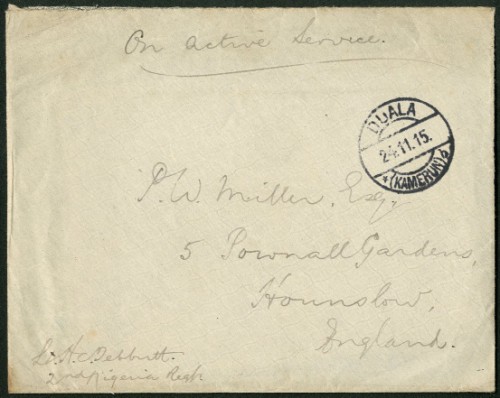 On Active Service.
DUALA
24.11.15.
(KAMERUN)
P. W. Miller, Esq.,
5 Pownall Gardens,
Hounslow,
England.
Lt. H. C. Debbutt.
2nd Nigeria Regt.